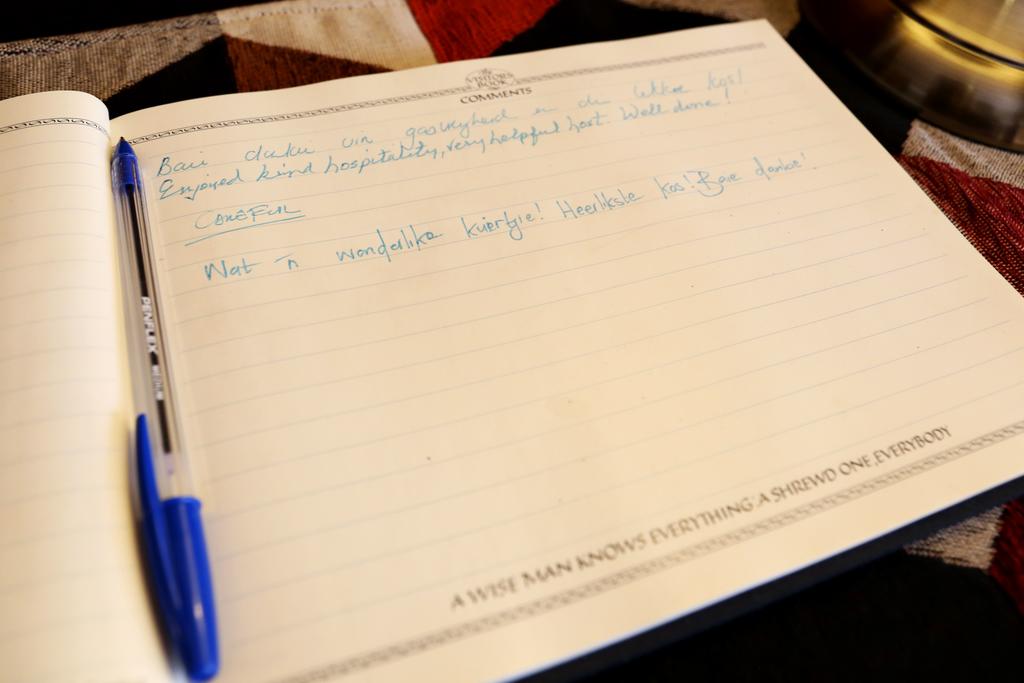 The
VISITORS
BOOK
COMMENTS
Baie dankie vir gasvryheid en die lekker kos!
Enjoyed kind hospitality, very helpful host. Well done!
Wat 'n wonderlike kuiertjie! Heerlikste kos! Baie dankie!
PENFLEX MEDIUM
A WISE MAN KNOWS EVERYTHING, A SHREWD ONE, EVERYBODY